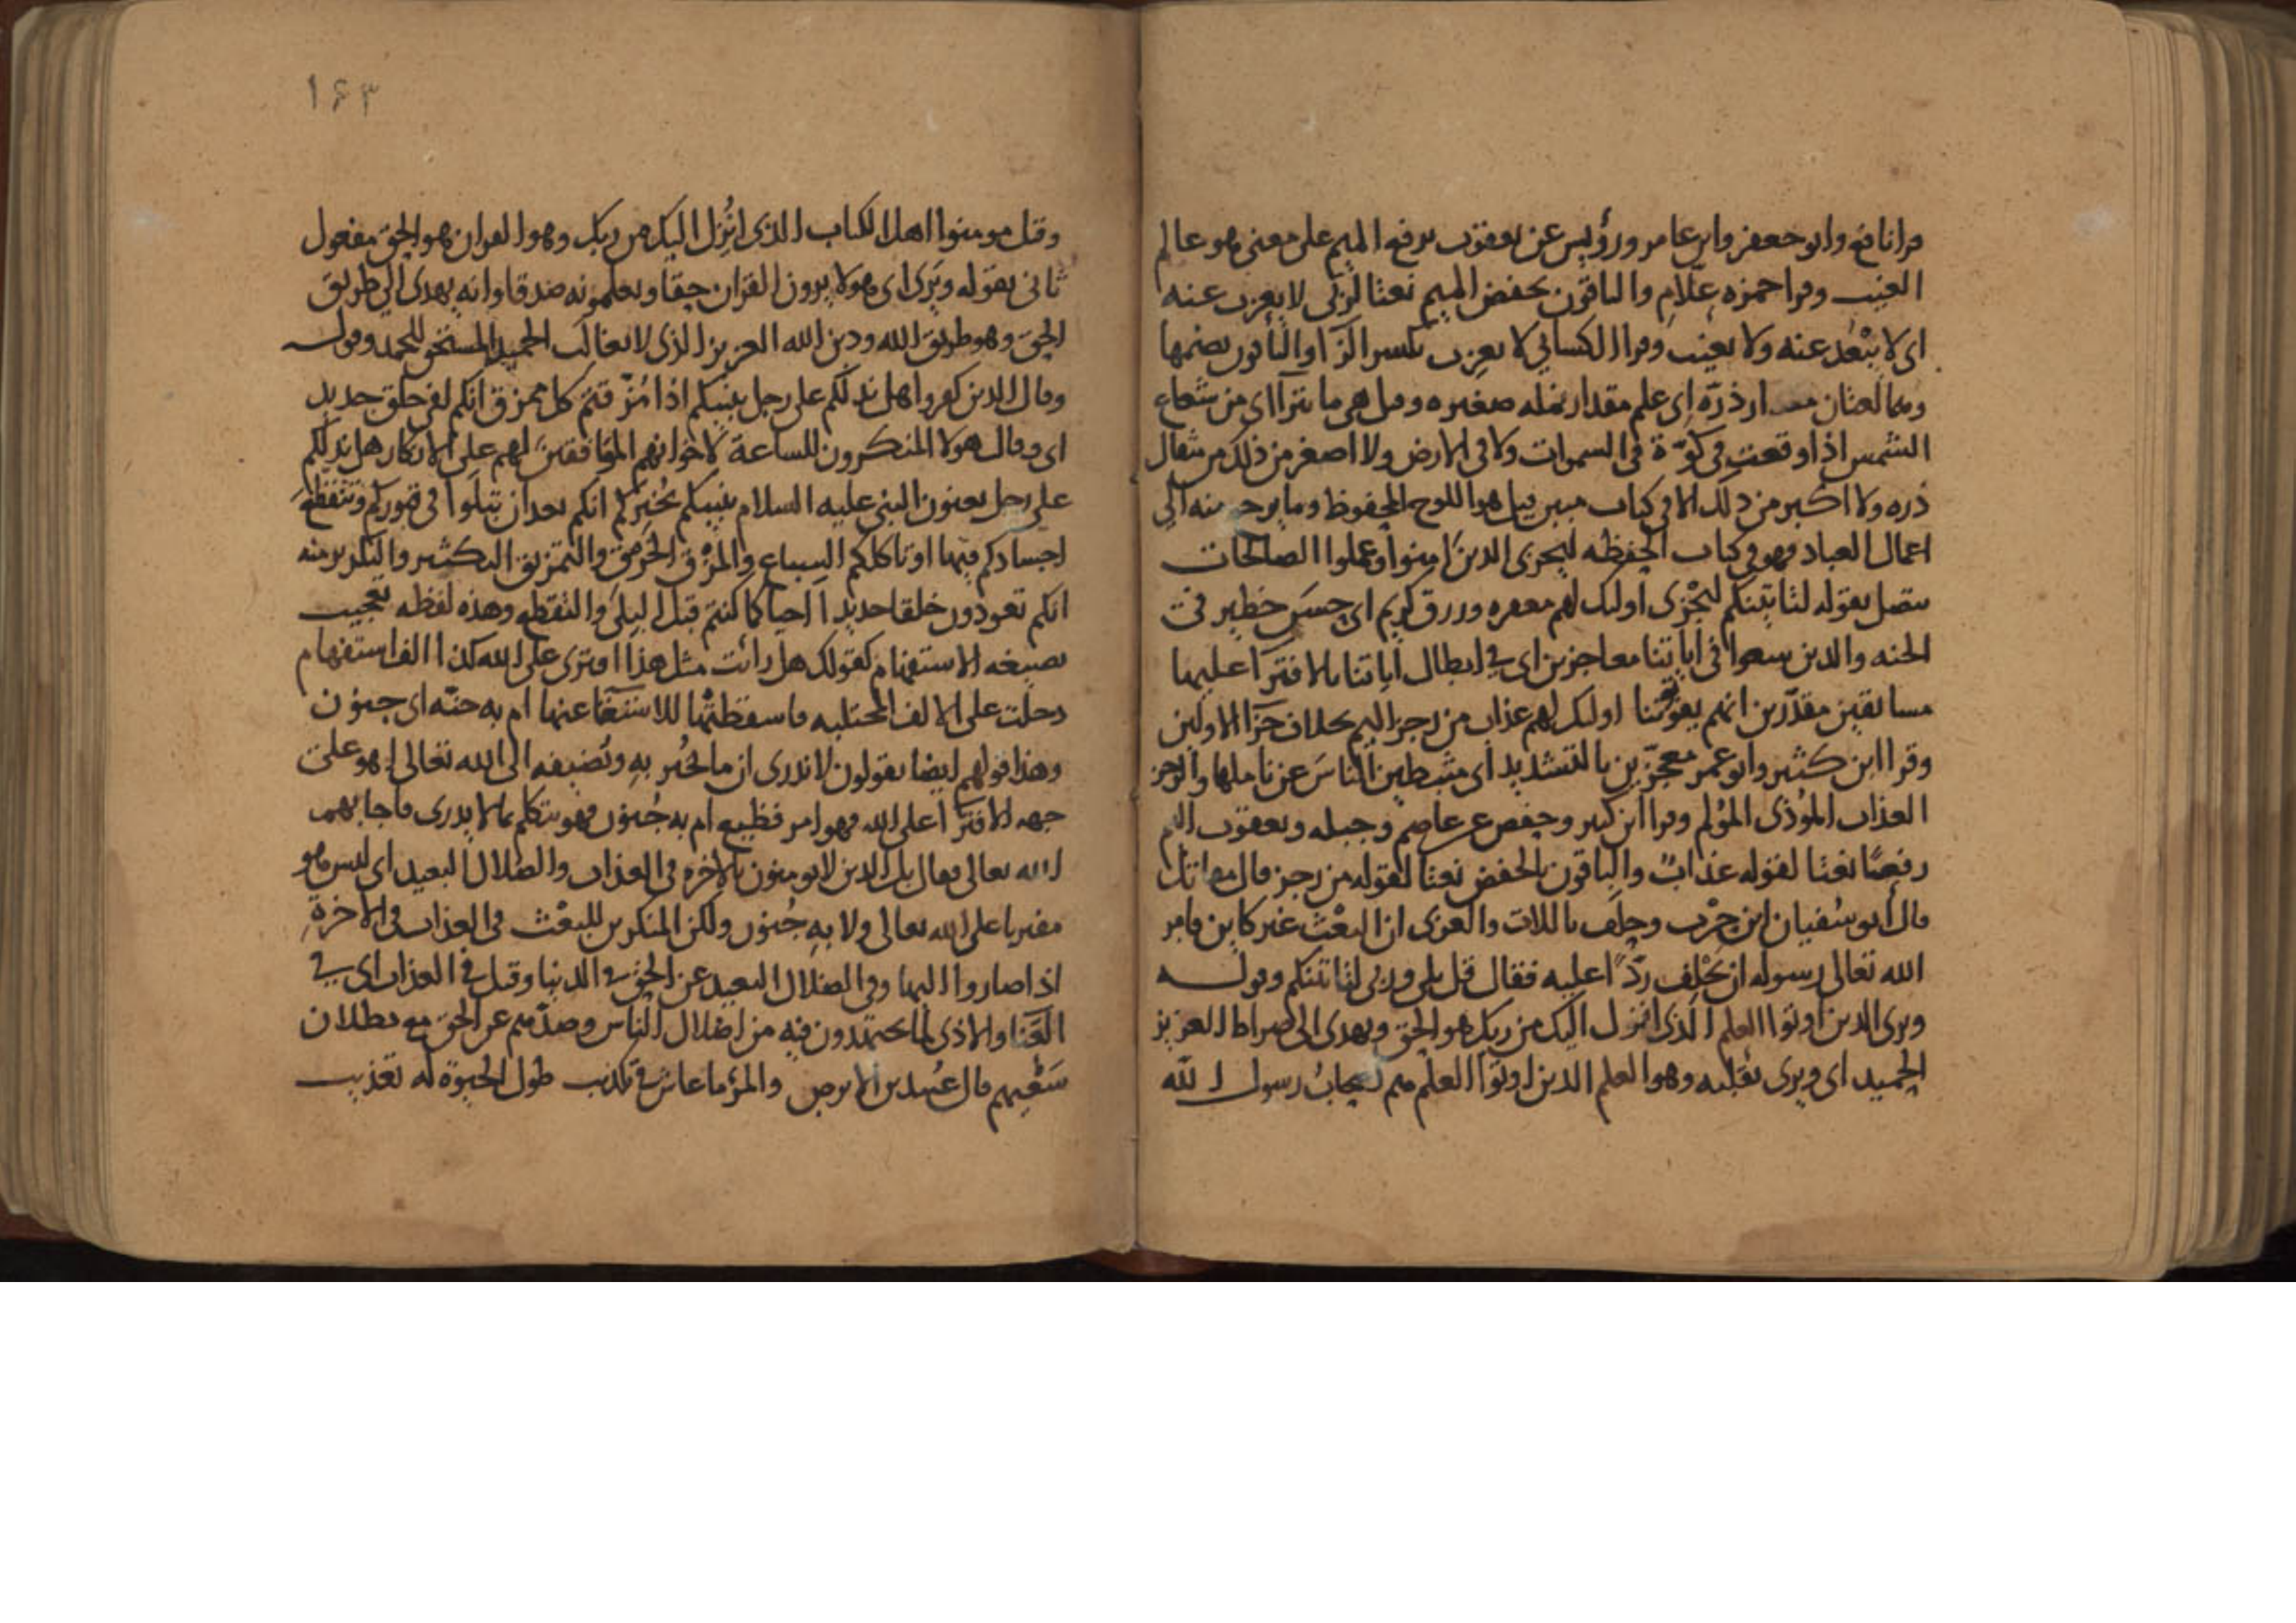 قرا نافع وابو جعفر وابن عامر ورؤيس عن يعقوب برفع الميم على معنى هو عالم
الغيب وقرا حمزه علّام والباقون بخفض الميم نعتا لربّى لا يعزب عنه
اى لا يبْعُد عنه ولا يغيب وقرا الكسائي لا يعزِب بكسر الزّا والباقون بضمها
وهما لغتان مقدار ذرّة اى علم مقدار نمله صغيره وقيل هى ما يترآاى من شعاع
الشمس اذا وقعت فى كوّة فى السموات ولا فى الارض ولا اصغر من ذلك من مثقال
ذره ولا اكبر من ذلك الا فى كتاب مبين قيل هو اللوح المحفوظ وما يرجع منه الى
اعمال العباد فهو فى كتاب الحفظه ليجزى الذين امنوا وعملوا الصالحات
يتصل بقوله لتاتينكم ليجْزى اوليك لهم مغفره ورزق كريم اى حسن خطير فى
الجنه والذين سعوا فى اياتنا معاجزين اى فى ابطال اياتنا بالافترآ عليها
مسابقين مقدّرين انهم يفوتوننا اوليك لهم عذاب من رجز اليم بخلاف جزآ الاولين
وقرا ابن كثير وابو عمر معجّزين بالتشديد اى مثبطين الناس عن تاملها والرجز
العذاب المؤذى المؤلم وقرا ابن كثير وحفص عن عاصم وجبله ويعقوب اليم
رفعًا نعتا لقوله عذابٌ والباقون بالخفض نعتا لقوله من رجز قال مقاتل
قال ابو سُفيان ابن حرْب وحلَف باللات والعزى ان البعْث غير كاين فامر
الله تعالى رسوله ان يحْلِف ردًّا عليه فقال قل بلى وربى لتاتينكم وقوله
ويرى الذين اوتوا العلم الذى انزل اليك من ربك هو الحق ويهدى الى صراط العزيز
الحميد اى ويرى بقلبه وهو العلم الذين اوتوا العلم هم اصحابُ رسول الله
١٤٣
وقيل مومنوا اهل الكتاب الذى انُزِل اليك من ربك وهو القران هو الحق مفعول
ثانى بقوله ويَرى اى هولا يرون القران حقا ويعلمونه صدقا وانه يهدى الى طريق
الحق وهو طريق الله ودين الله العزيز الذى لا يغالب الحميد المستحق للحمد وقوله
وقال الذين كفروا هل ندلّكم على رجل ينبيكم اذا مُزّقتم كل ممزق انكم لفى خلق جديد
اى وقال هولا المنكرون للساعة لاخوانهم الموافقين لهم على الانكار هل ندلّكم
على رجل يعنون النبى عليه السلام ينبيكم يُخبركم انكم بعد ان تبلَوا فى قبوركم وتتقطع
اجسادكم فيها او تاكلكم السباع والمزْق الخرق والتمزيق التكثير والتكرير منه
انكم تعودون خلقا جديدا احيا كما كنتم قبل البِلى والتقطع وهذه لفظه تعجيب
بصيغه الاستفهام كقولك هل رائت مثل هذا افترى على الله كذبا الف استفهام
دخلت على الالف المجتلبه فاسقطتْها للاستغنآ عنها ام به جنّه اى جنون
وهذا قولهم ايضا يقولون لا ندرى ان ما يخبر بهِ ويُضيفه الى الله تعالى اهو على
جهه الافترآ على الله فهو امر فظيع ام به جُنون فهو يتكلم بما لا يدرى فاجابهم
الله تعالى فقال بل الذين لا يومنون بالاخره فى العذاب والضلال البعيد اى ليس هو
مفتريا على الله تعالى ولا بهِ جُنون ولكن المنكرين للبعْث فى العذاب فى الاخرةِ
اذا صاروا اليها وفى الضلال البعيد عن الحق فى الدنيا وقيل فى العذاب اى فى
العَنا والاذى لما يجتهدون فيه من اضلال الناس وصدّهم عن الحق مع بطلان
سَعْيهم قال عُبيد بن الابرص والمرؤ ما عاش فى تكذيب طول الحيوة له تعذيب